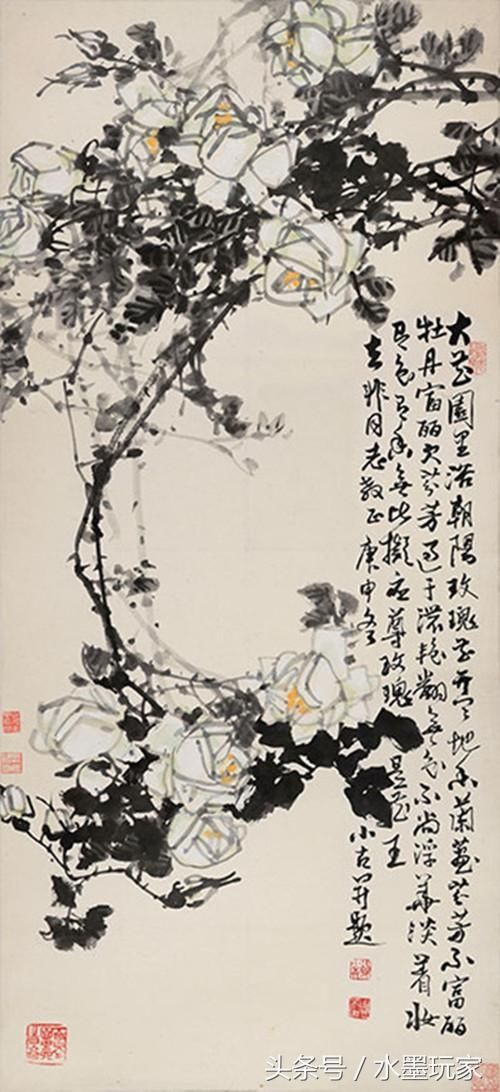 大花園里浴朝陽玫瑰花地香蘭蕙芬芳不富麗
牡丹富麗欠芬芳過于濃艷翻無色不尚浮華淡着妝
有色有香無比擬應尊玫瑰是花王
去非同志教正 庚申冬 小古并題
头条号／水墨玩家